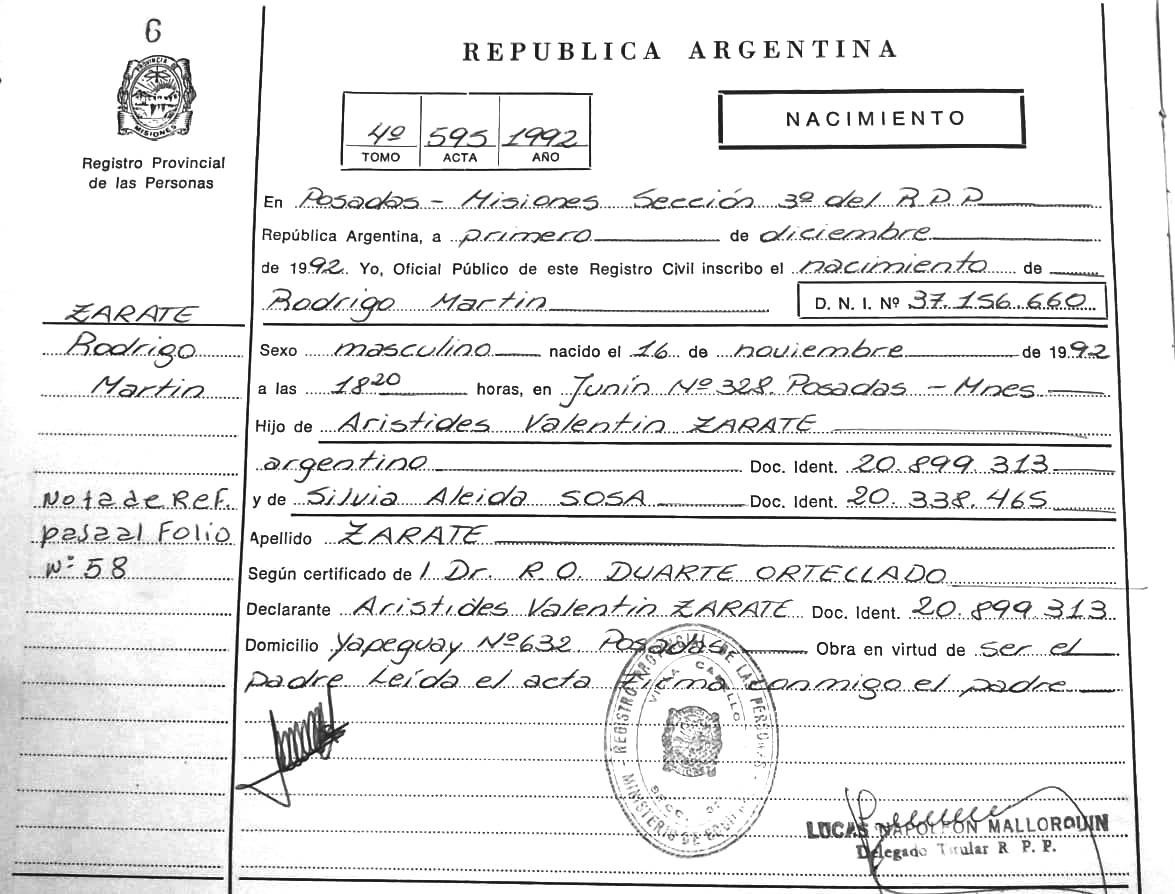 6
PROVINCIA DE
MISIONES
Registro Provincial
de las Personas
REPUBLICA ARGENTINA
4º 595 1992
TOMO ACTA AÑO
NACIMIENTO
En Posadas - Misiones Sección 3º del R.P.P
República Argentina, a primero de diciembre
de 1992. Yo, Oficial Público de este Registro Civil inscribo el nacimiento de
Rodrigo Martin D. N. I. Nº 37.156.660
ZARATE
Rodrigo
Martin
Nota de Ref.
pasa al Folio
Nº 58
Sexo masculino nacido el 16 de noviembre de 1992
a las 18 20 horas, en Junín Nº 328. Posadas - Mnes
Hijo de Aristides Valentin ZARATE
argentino Doc. Ident. 20.899.313
y de Silvia Aleida SOSA Doc. Ident. 20.338.465
Apellido ZARATE
Según certificado de l Dr. R.O. DUARTE ORTELLADO
Declarante Aristides Valentin ZARATE Doc. Ident. 20.899.313
Domicilio Yapeguay Nº 632 Posadas Obra en virtud de ser el
padre Leída el acta Firma conmigo el padre
REGISTRO PROVINCIAL DE LAS PERSONAS
VILLA CABELLO
MINISTERIO DE
LUCAS NAPOLEON MALLORQUIN
Delegado Titular R. P. P.